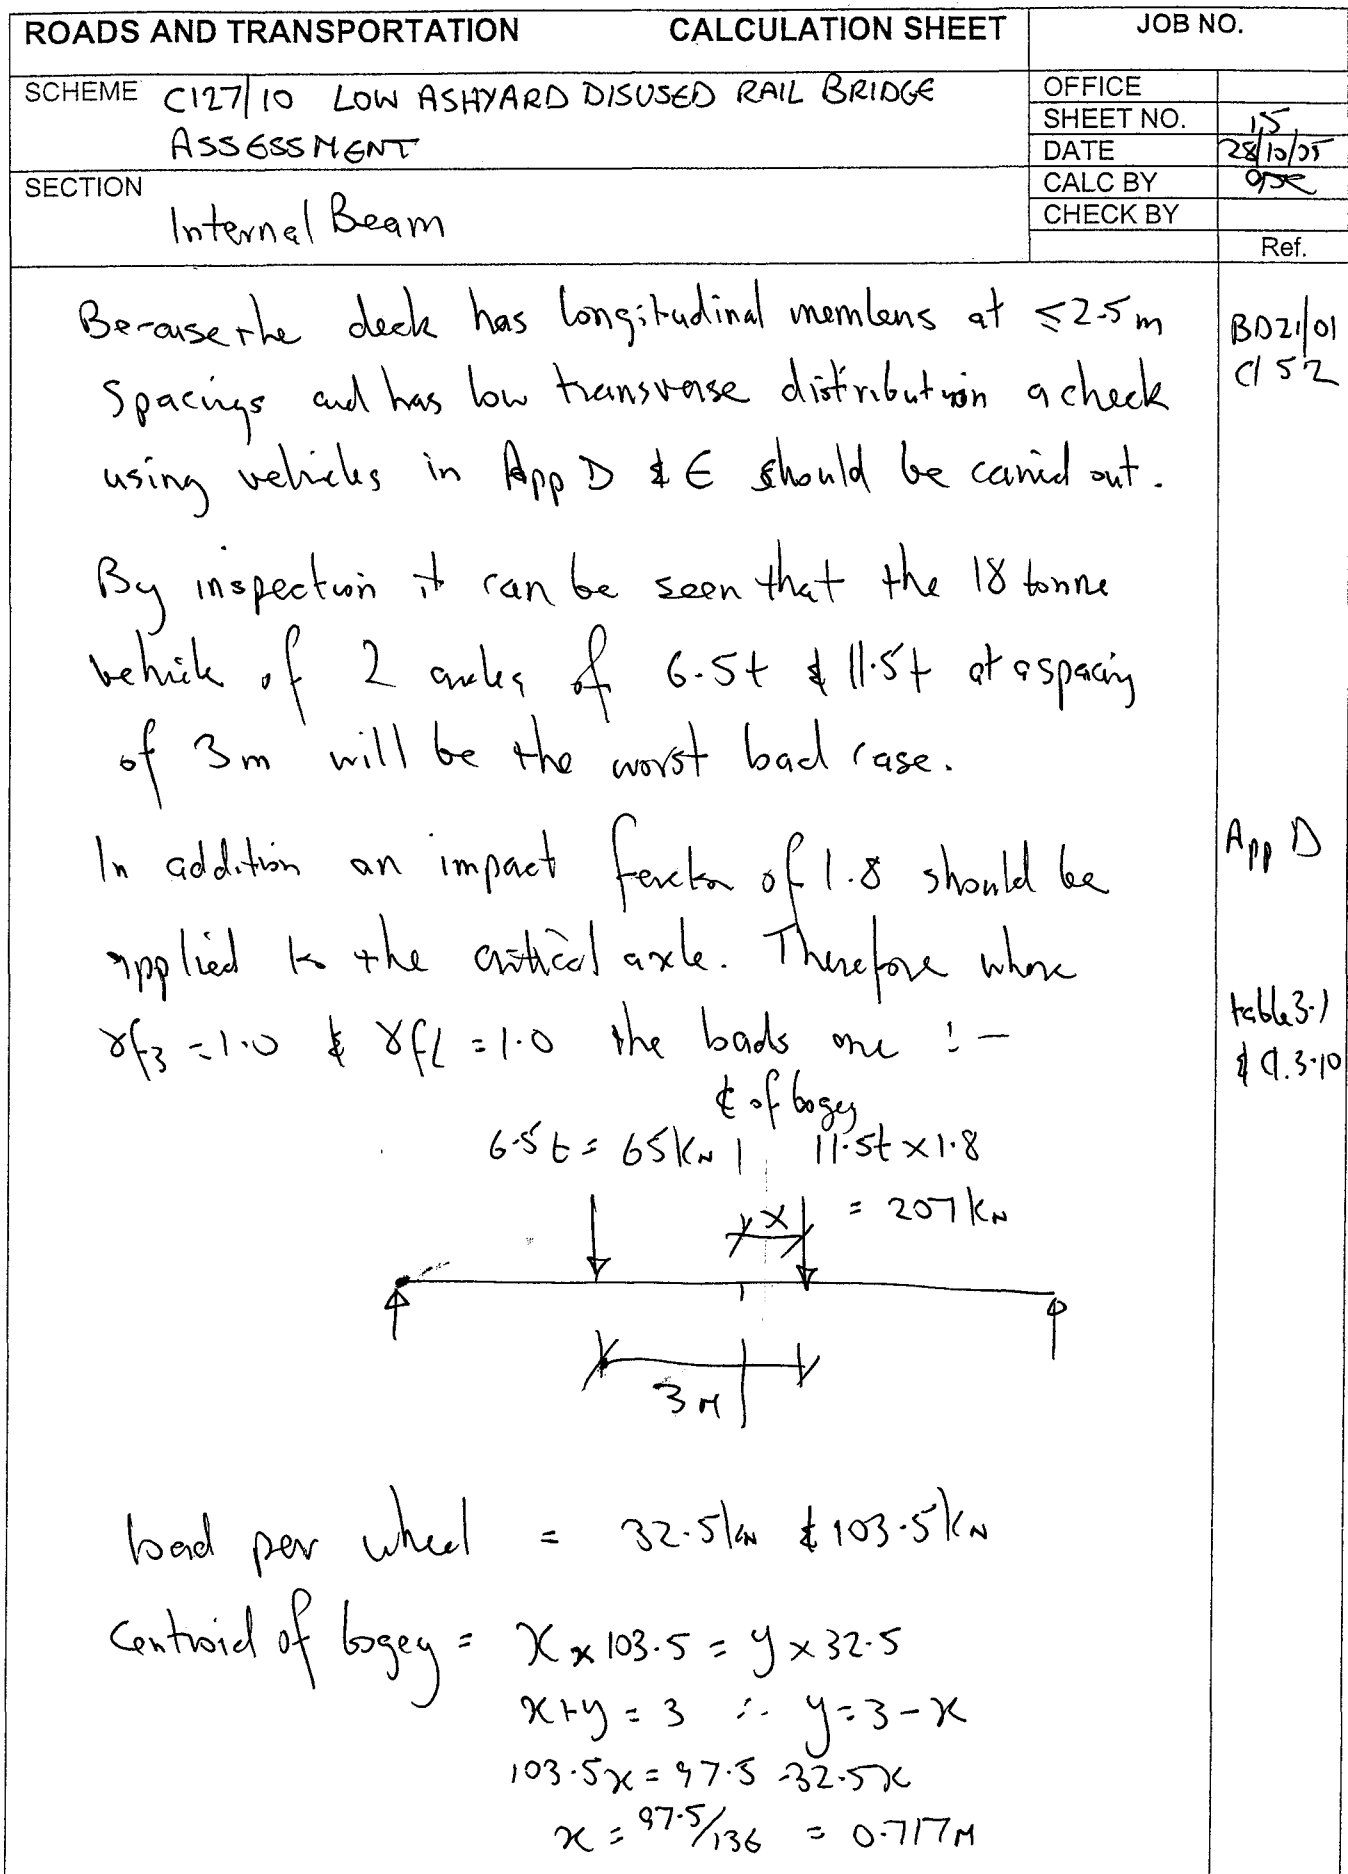 ROADS AND TRANSPORTATION CALCULATION SHEET JOB NO.
SCHEME C127/10 LOW ASHYARD DISUSED RAIL BRIDGE
ASSESSMENT
OFFICE
SHEET NO. 15
DATE 28/10/05
SECTION Internal Beam
CALC BY
CHECK BY
Ref.
Because the deck has longitudinal members at ≤2.5m BD21/01
spacings and has low transverse distribution a check Cl 5.2
using vehicles in App D & E should be carried out.
By inspection it can be seen that the 18 tonne
vehicle of 2 axles of 6.5t & 11.5t at a spacing
of 3m will be the worst load case.
In addition an impact factor of 1.8 should be App D
applied to the critical axle. Therefore where
γf3 = 1.0 & γfL = 1.0 the loads are :- table 3.1
& Cl. 3.10
℄ of bogey
6.5t = 65kN 11.5t x 1.8
x = 207kN
3M
load per wheel = 32.5kN & 103.5kN
Centroid of bogey = x x 103.5 = y x 32.5
x+y = 3 ∴ y = 3-x
103.5x = 97.5 - 32.5x
x = 97.5/136 = 0.717M